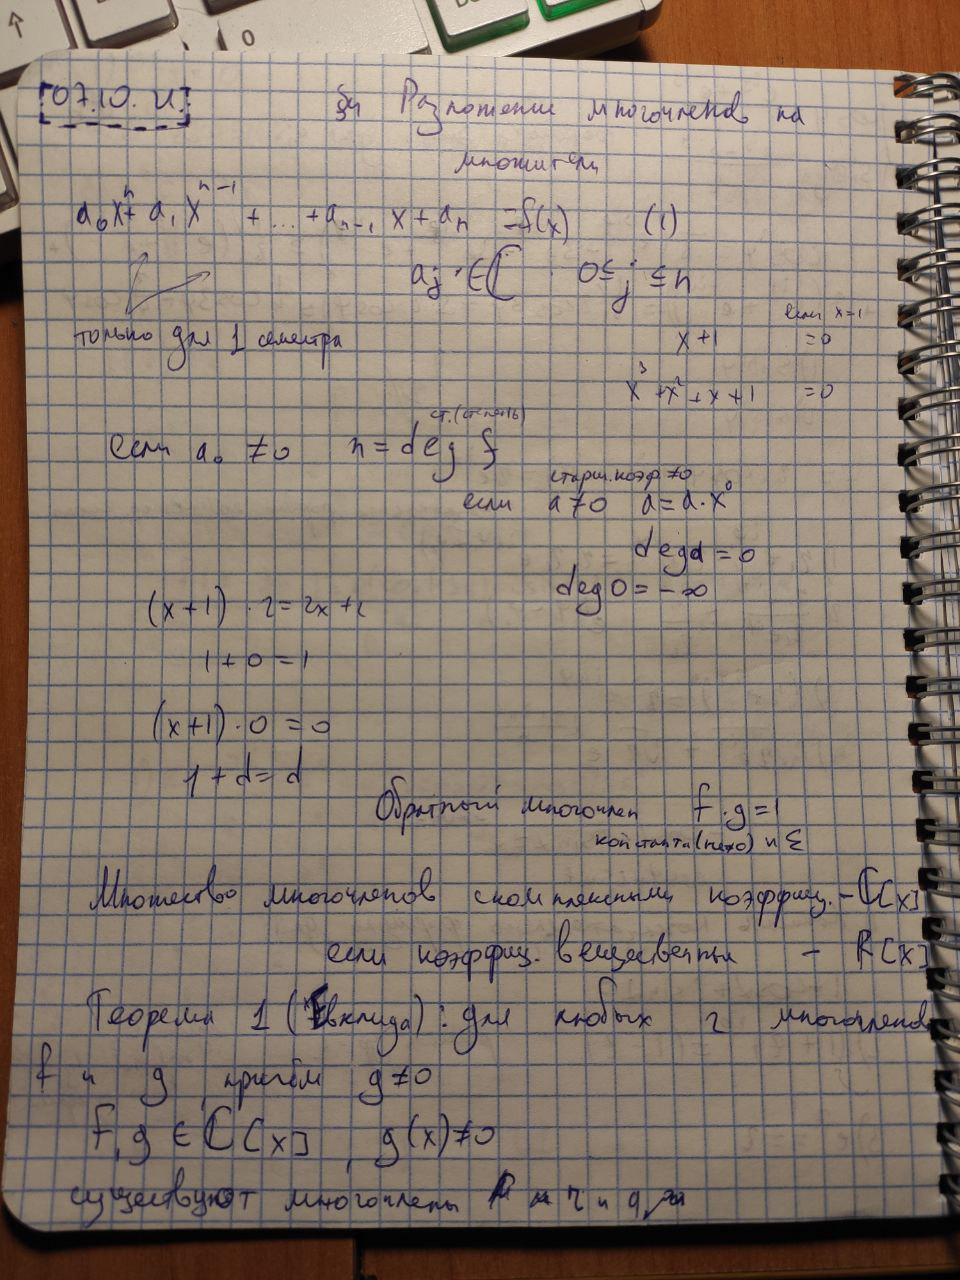 07.10.21
§4 Разложение многочленов на
множители
a₀xⁿ + a₁xⁿ⁻¹ + ... + aₙ₋₁x + aₙ = f(x) (1)
aⱼ ∈ ℂ 0 ≤ j ≤ n
только для 1 семестра
если x=-1
x+1 =0
x³+x²+x+1 =0
ст.(степень)
если a₀ ≠0 n = deg f
старш. коэф. ≠0
если a≠0 a=a·x⁰
deg a = 0
deg 0 = -∞
(x+1)·2=2x+2
1+0=1
(x+1)·0=0
1+d=d
Обратный многочлен f·g=1
константа
Множество многочленов с комплексными коэффиц. - ℂ[x]
если коэффиц. вещественны - R[x]
Теорема 1 (Евклида): для любых 2 многочленов
f и g причём g≠0
f, g ∈ ℂ[x], g(x)≠0
существуют многочлены r и q